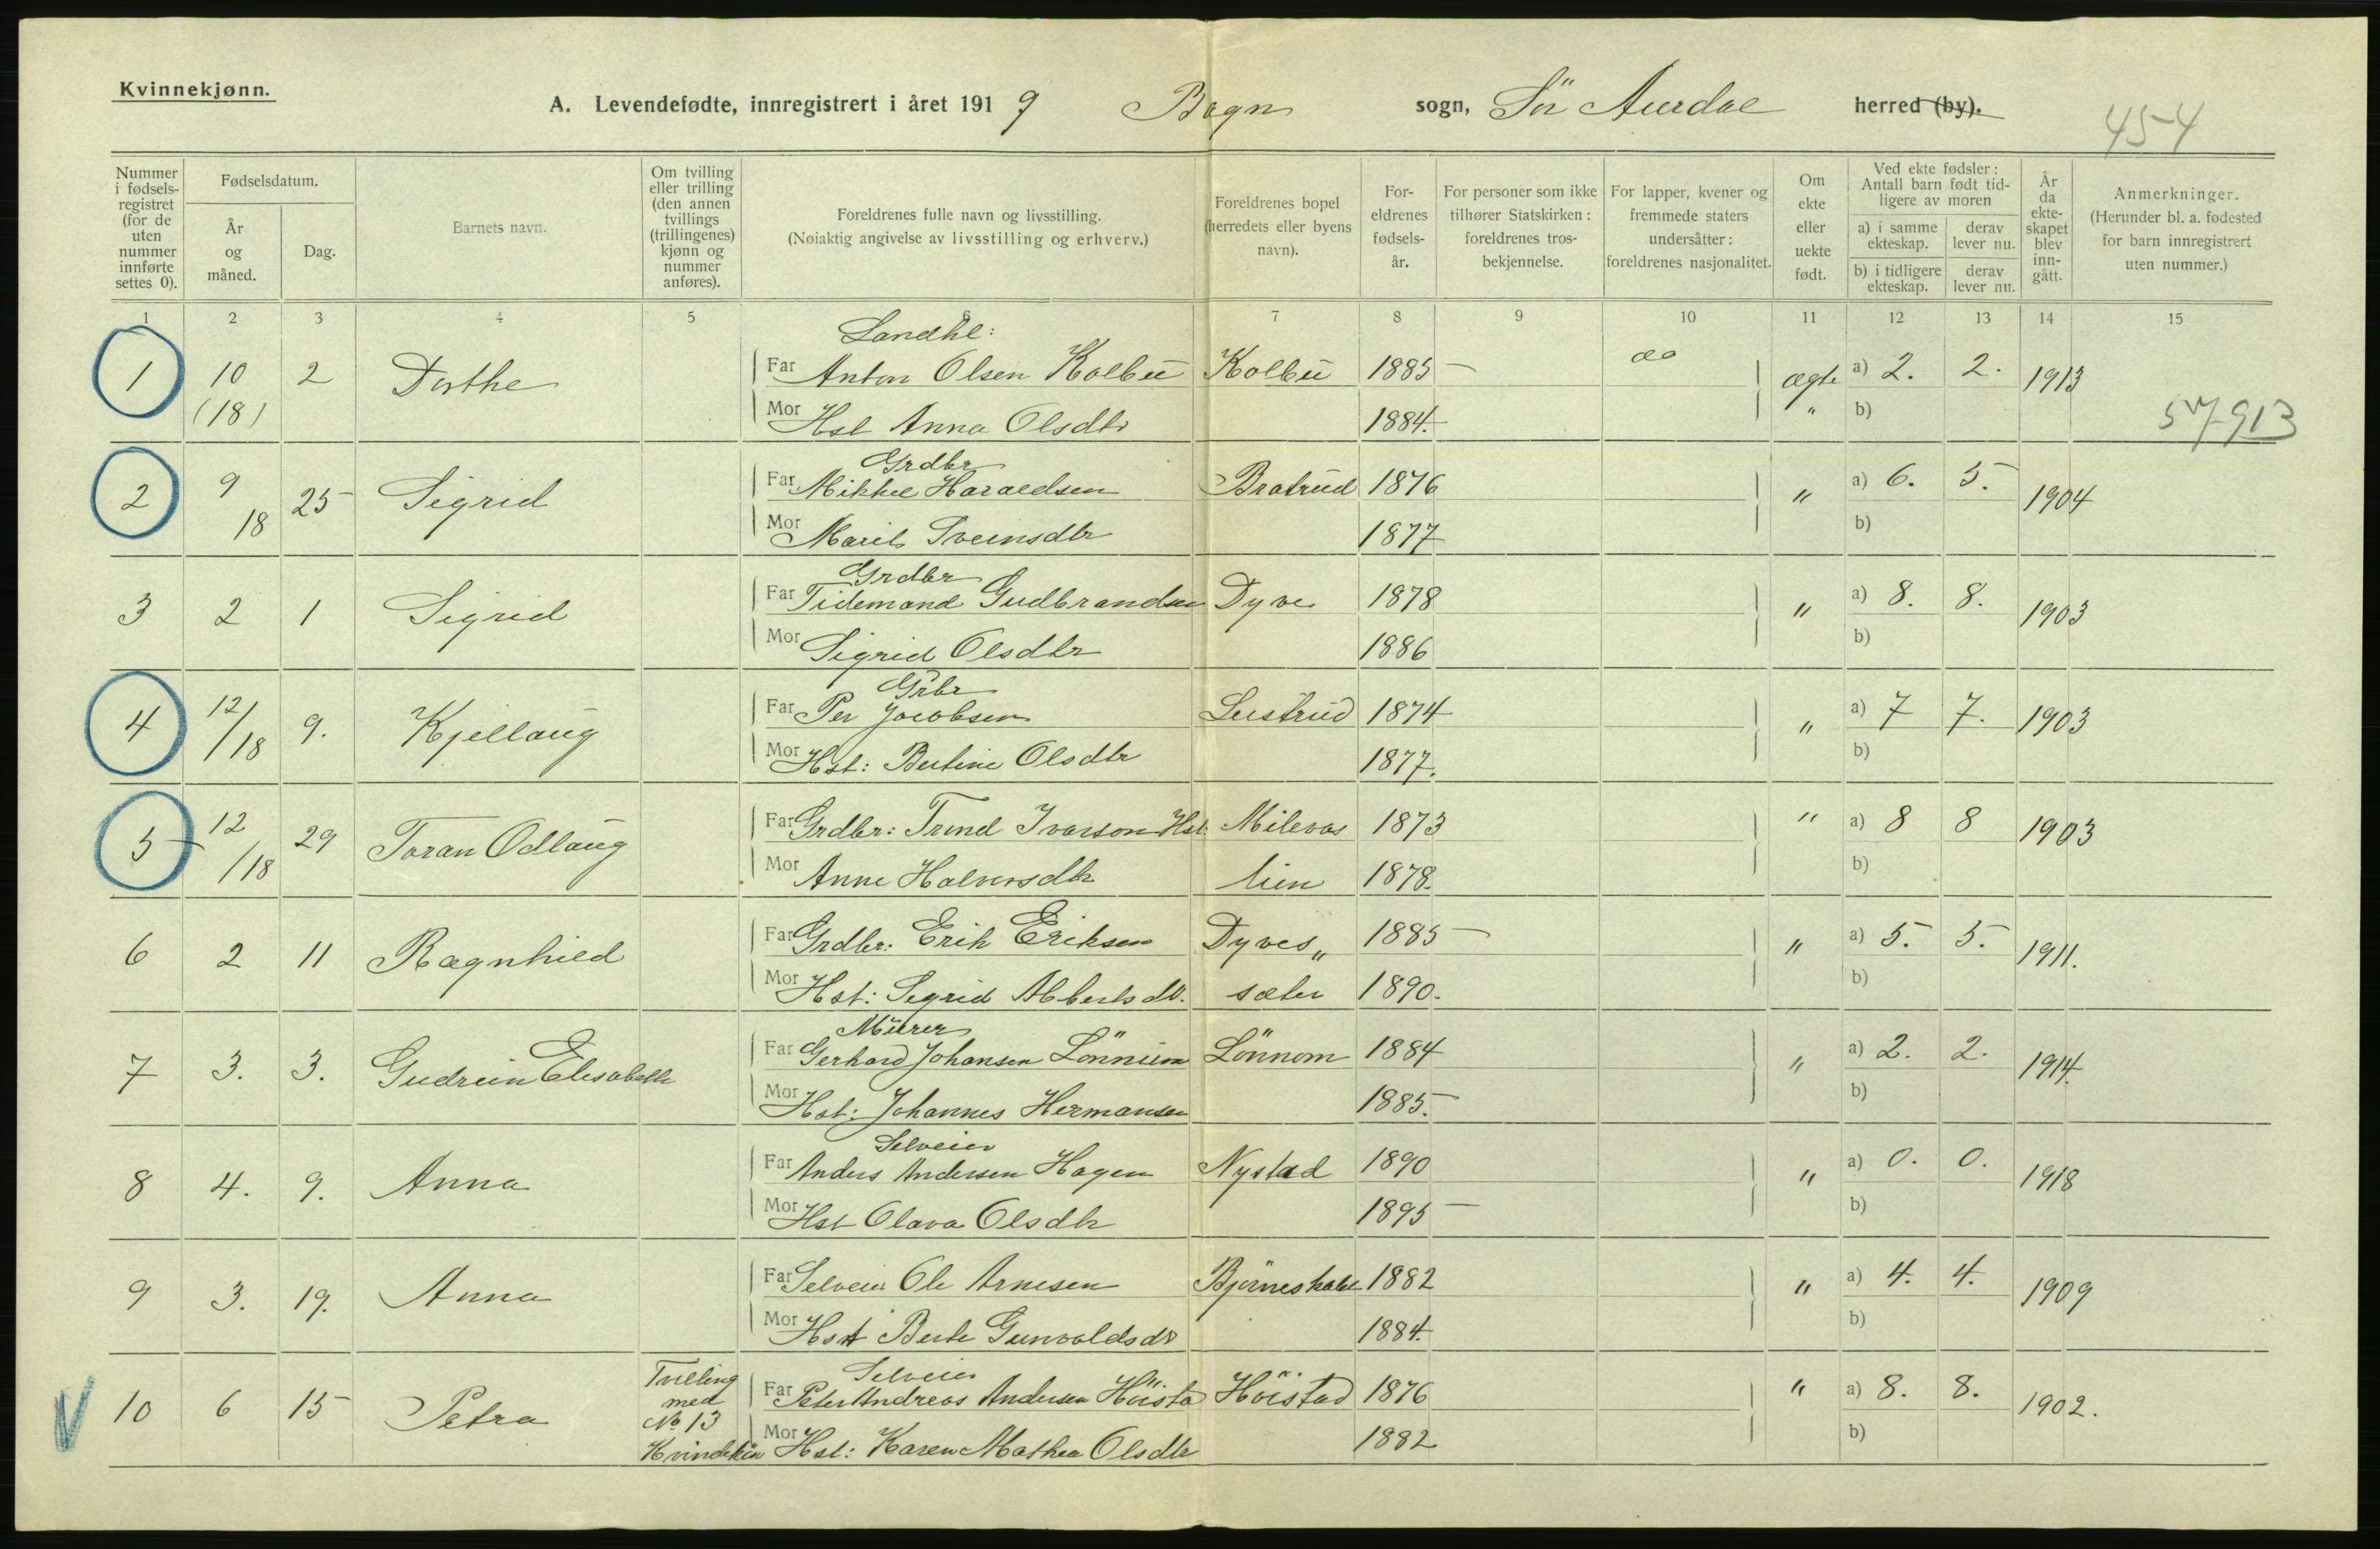 Kvinnekjønn.
A. Levendefødte, innregistrert i året 1919 Bagn sogn, Sör Aurdal herred (by).
454
Nummer i fødselsregistret (for de uten nummer innførte settes 0).
Fødselsdatum.
År og måned.
Dag.
Barnets navn.
Om tvilling eller trilling (den annen tvillings (trillingenes) kjønn og nummer anføres).
Foreldrenes fulle navn og livsstilling.
(Nøiaktig angivelse av livsstilling og erhverv.)
Foreldrenes bopel (herredets eller byens navn).
Foreldrenes fødselsår.
For personer som ikke tilhører Statskirken: foreldrenes trosbekjennelse.
For lapper, kvener og fremmede staters undersåtter: foreldrenes nasjonalitet.
Om ekte eller uekte født.
Ved ekte fødsler: Antall barn født tidligere av moren
a) i samme ekteskap. derav lever nu.
b) i tidligere ekteskap. derav lever nu.
År da ekteskapet blev inngått.
Anmerkninger.
(Herunder bl. a. fødested for barn innregistrert uten nummer.)
1 2 3 4 5 6 7 8 9 10 11 12 13 14 15
Landhl:
1 10 (18) 2 Dorthe Far Anton Olsen Kolbu Kolbu 1885 ægte a) 2. 2. 1913
Mor Hst Anna Olsdtr 1884. " b)
57913
Grdbr
2 9 18 25 Sigrid Far Mikkel Haraldsen Bratrud 1876 " a) 6. 5. 1904
Mor Marit Sveinsdtr 1877 b)
Grdbr
3 2 1 Sigrid Far Tidemand Gudbrandsen Dyve 1878 " a) 8. 8. 1903
Mor Sigrid Olsdtr 1886 b)
Grbr
4 12/18 9. Kjellaug Far Per Jacobsen Leistrud 1874 " a) 7 7. 1903
Mor Hst: Bertine Olsdtr 1877. b)
5 12/18 29 Toran Odlaug Far Grdbr: Trond Ivarson Hst: Milevas 1873 " a) 8 8 1903
Mor Anne Halvorsdtr lien 1878. b)
6 2 11 Ragnhild Far Grdbr: Erik Eriksen Dyves„ 1885 " a) 5. 5. 1911.
Mor Hst: Sigrid Albertsdtr. sæter 1890. b)
Murer
7 3. 3. Gudrun Elisabeth Far Gerhard Johansen Lönnum Lönnom 1884 " a) 2. 2. 1914.
Mor Hst: Johannes Hermansen 1885. b)
Selveier
8 4. 9. Anna Far Anders Andersen Hagen Nystad 1890 " a) 0. 0. 1918
Mor Hst Olava Olsdtr 1895 b)
9 3. 19. Anna Far Selveier Ole Arnesen Björneskalet 1882 " a) 4. 4. 1909
Mor Hst Berte Gunvoldsdr 1884. b)
Selveier
10 6 15 Petra Tvilling med No 13 Kvindekön Far Peter Andreas Andersen Höista Höistad 1876 " a) 8. 8. 1902.
Mor Hst: Karen Mathea Olsdtr 1882 b)